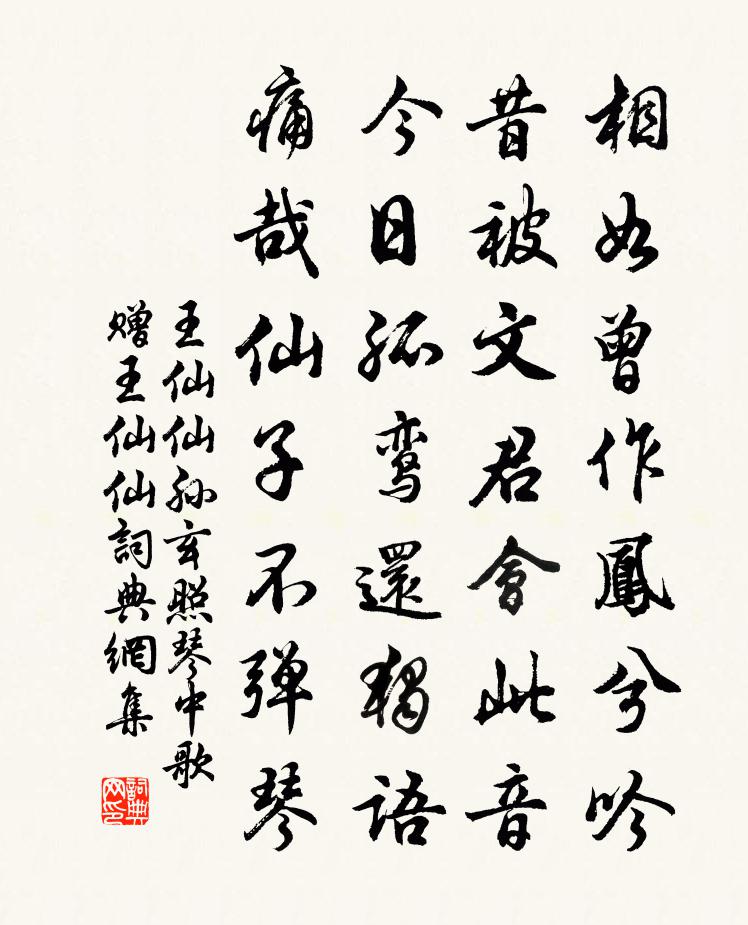 相如曾作鳳兮吟
昔被文君會此音
今日孤鸾還獨語
痛哉仙子不弹琴
王仙仙孙玄照琴中歌
赠王仙仙詞典網集
詞典网印